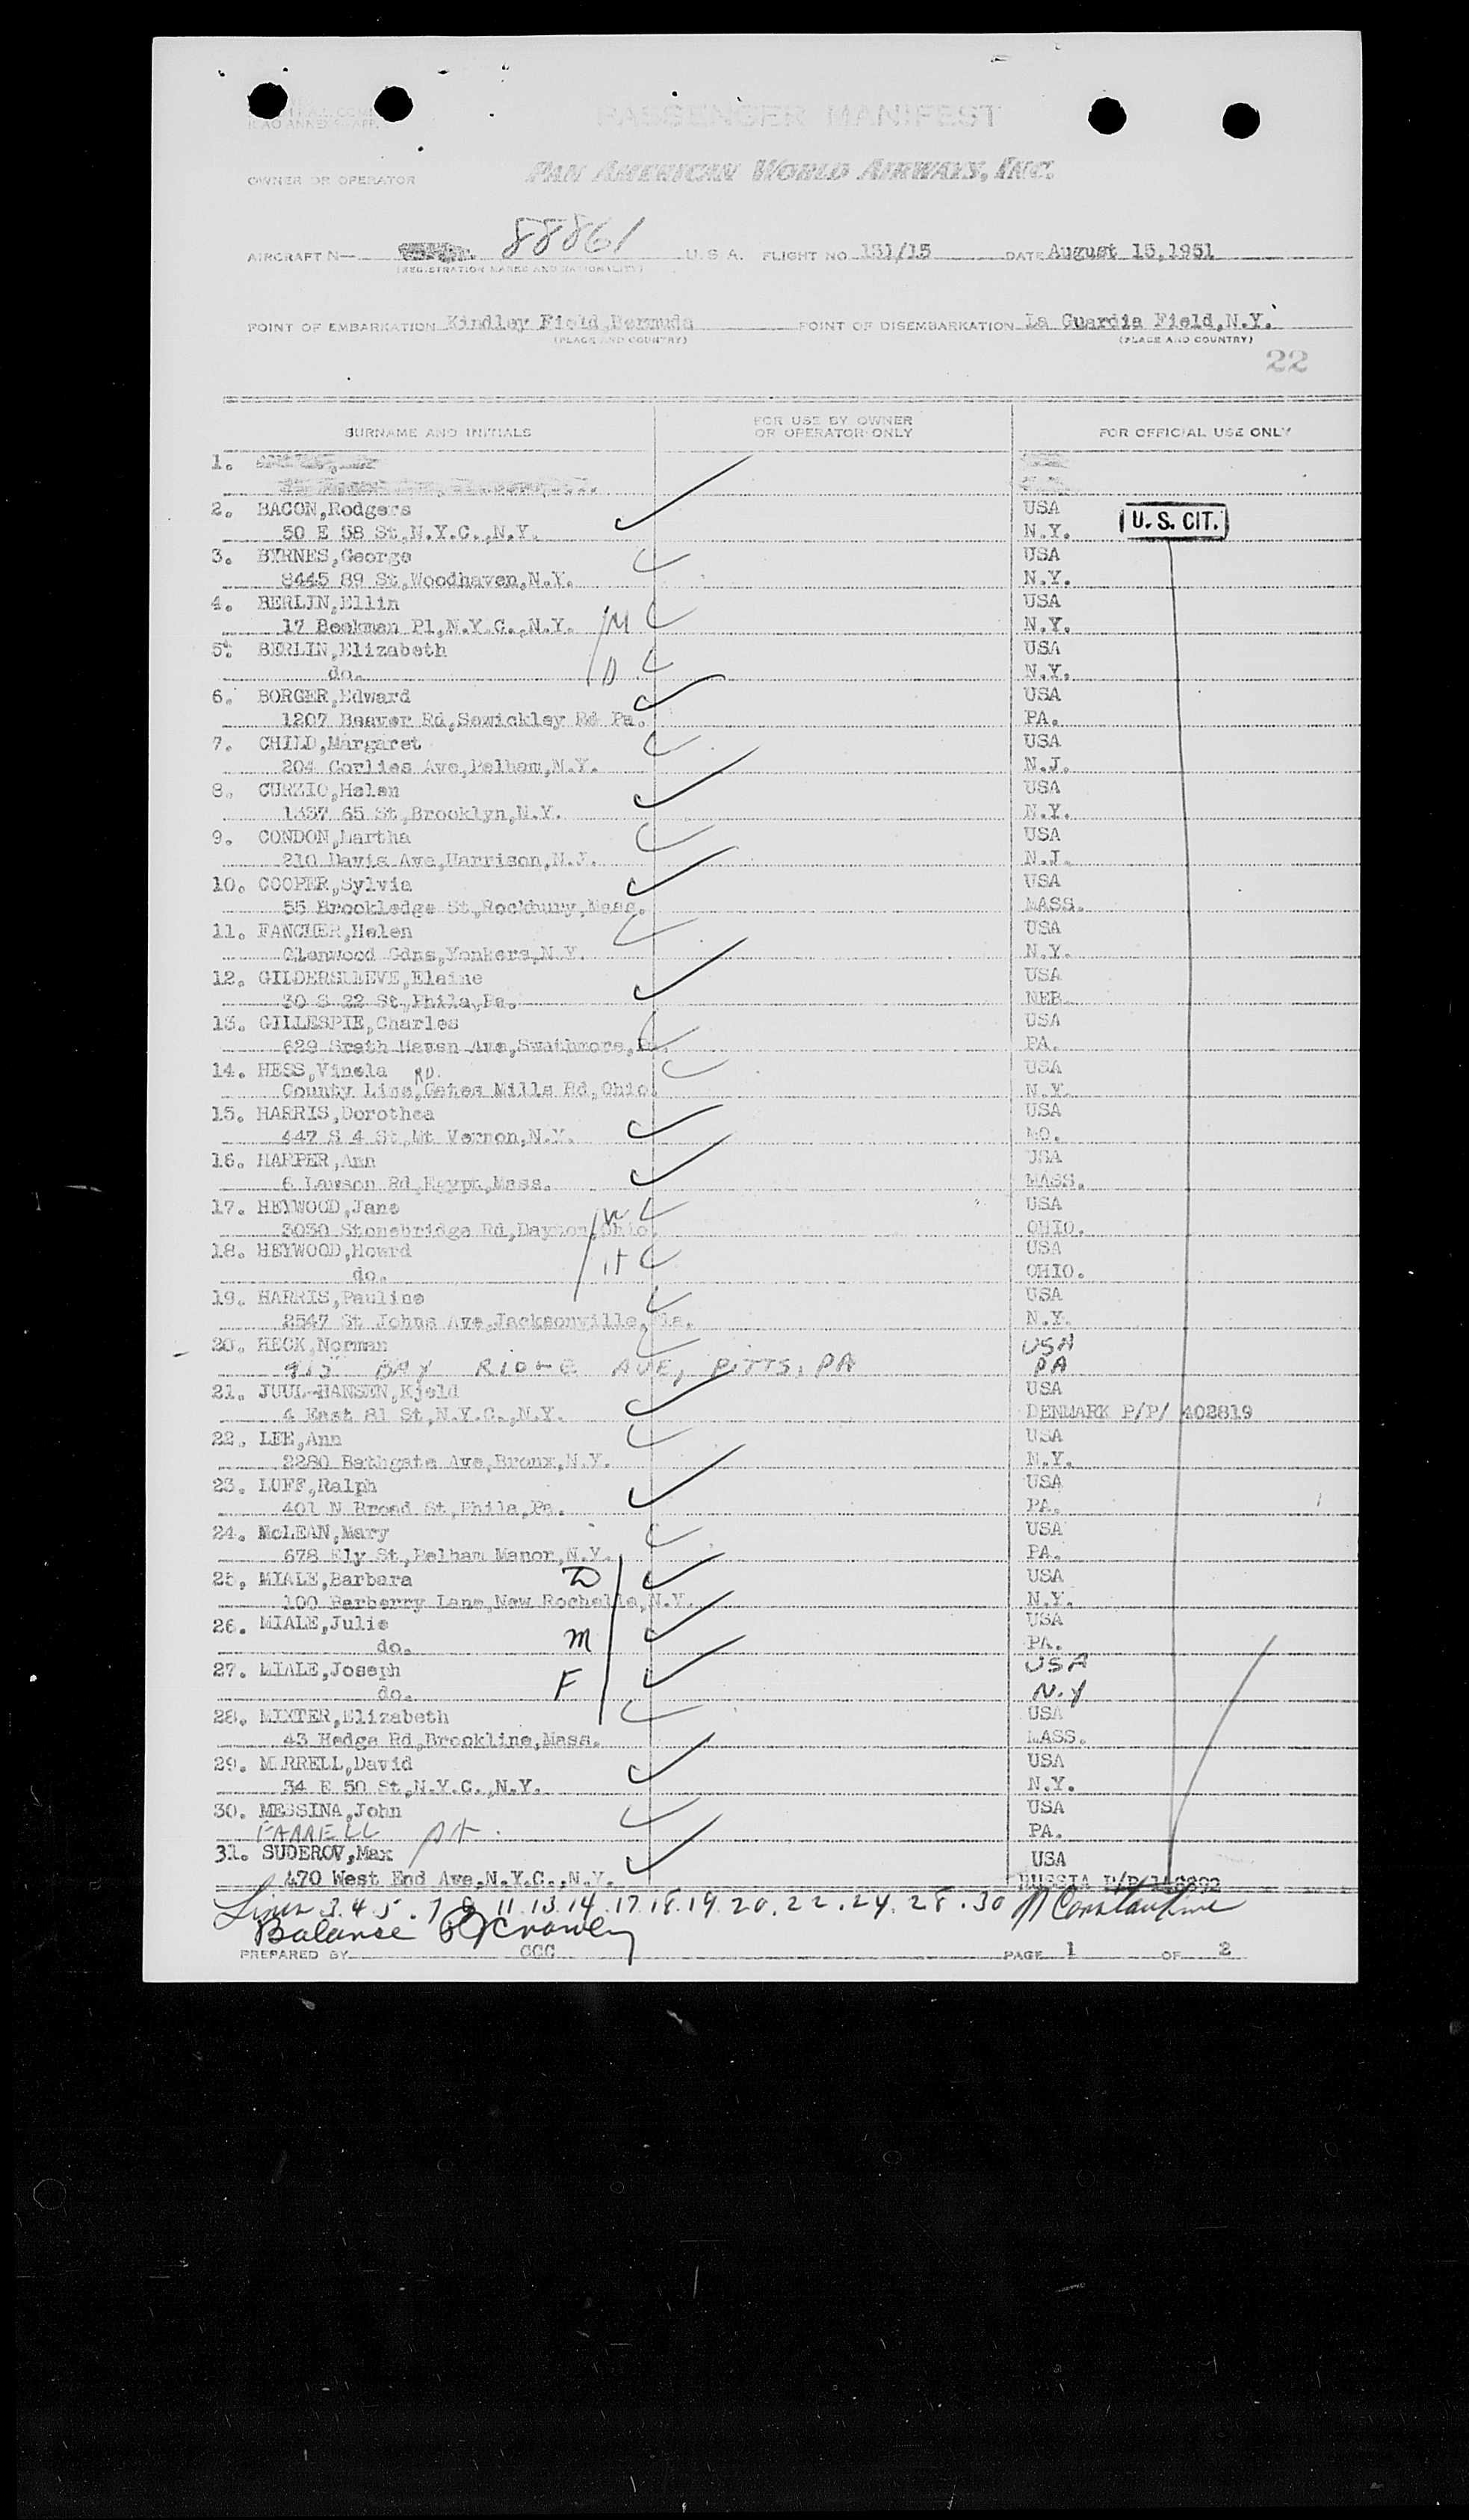 PASSENGER MANIFEST
PAN AMERICAN WORLD AIRWAYS, INC.
OWNER OR OPERATOR
AIRCRAFT N— 88861 U.S.A. FLIGHT NO 131/15 DATE August 15,1951
(REGISTRATION MARKS AND NATIONALITY)
POINT OF EMBARKATION Kindley Field,Bermuda POINT OF DISEMBARKATION La Guardia Field,N.Y.
(PLACE AND COUNTRY) (PLACE AND COUNTRY)
22
SURNAME AND INITIALS FOR USE BY OWNER OR OPERATOR ONLY FOR OFFICIAL USE ONLY
1.
2. BACON,Rodgers USA
50 E 58 St,N.Y.C.,N.Y. N.Y. U. S. CIT.
3. BYRNES,George USA
8445 89 St,Woodhaven,N.Y. N.Y.
4. BERLIN,Ellin USA
17 Beekman Pl,N.Y.C.,N.Y. M N.Y.
5. BERLIN,Elizabeth USA
do. D N.Y.
6. BORGER,Edward USA
1207 Beaver Rd,Sewickley Rd Pa. PA.
7. CHILD,Margaret USA
204 Corlies Ave,Pelham,N.Y. N.J.
8. CURZIO,Helen USA
1337 65 St,Brooklyn,N.Y. N.Y.
9. CONDON,Martha USA
210 Davis Ave,Harrison,N.J. N.J.
10. COOPER,Sylvia USA
55 Brookledge St,Rockbury,Mass. MASS.
11. FANCHER,Helen USA
Glenwood Gdns,Yonkers,N.Y. N.Y.
12. GILDERSLEEVE,Elaine USA
30 S 22 St,Phila,Pa. NEB.
13. GILLESPIE,Charles USA
629 Srath Haven Ave,Swathmore,Pa. PA.
14. HESS,Vinela RD. USA
County Line,Gates Mills Rd,Ohio. N.Y.
15. HARRIS,Dorothea USA
447 S 4 St,Mt Vernon,N.Y. MO.
16. HARPER,Ann USA
6 Lawson Rd,Egypt,Mass. MASS.
17. HEYWOOD,Jane W USA
3030 Stonebridge Rd,Dayton,Ohio. OHIO.
18. HEYWOOD,Howard H USA
do. OHIO.
19. HARRIS,Pauline USA
2547 St Johns Ave,Jacksonville,Fla. N.Y.
20. HECK,Norman USA
BAY RIDGE AVE, PITTS, PA PA
21. JUUL-HANSEN,Kjeld USA
4 East 81 St,N.Y.C.,N.Y. DENMARK P/P/ 402819
22. LEE,Ann USA
2280 Bathgate Ave,Bronx,N.Y. N.Y.
23. LUFF,Ralph USA
401 N Broad St,Phila,Pa. PA.
24. McLEAN,Mary USA
678 Ely St,Pelham Manor,N.Y. PA.
25. MIALE,Barbara D USA
100 Barberry Lane,New Rochelle,N.Y. N.Y.
26. MIALE,Julie USA
do. M PA.
27. MIALE,Joseph USA
do. F N.Y
28. MIXTER,Elizabeth USA
43 Hedge Rd,Brookline,Mass. MASS.
29. MERRELL,David USA
34 E 50 St,N.Y.C.,N.Y. N.Y.
30. MESSINA,John USA
FARRELL PA. PA.
31. SUDEROV,Max USA
470 West End Ave,N.Y.C.,N.Y. RUSSIA P/P
Lines 3.4 5. 7 9 11.13.14.17.18.19.20.22.24.28.30 Constantine
Balance
PREPARED BY CCC PAGE 1 OF 2